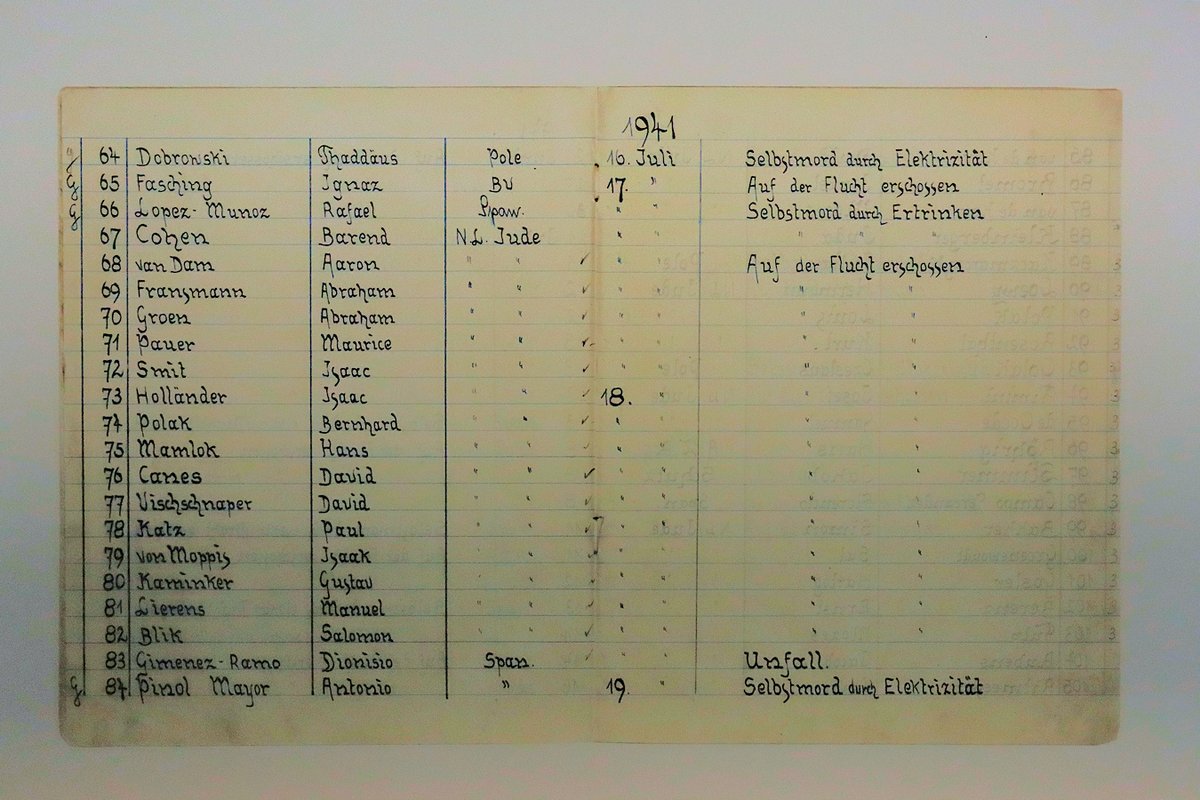 1941
G 64 Dobrowski Thaddäus Pole 16. Juli Selbstmord durch Elektrizität
G 65 Fasching Ignaz BV 17. " Auf der Flucht erschossen
G 66 Lopez-Munoz Rafael Span. " " Selbstmord durch Ertrinken
67 Cohen Barend N.L. Jude " " " " "
68 van Dam Aaron " " ✓ " Auf der Flucht erschossen
69 Fransmann Abraham " " ✓ " " " "
70 Groen Abraham " " ✓ " " " "
71 Pauer Maurice " " ✓ " " " "
72 Smit Isaac " " ✓ " " " "
73 Holländer Isaac " " ✓ 18. " " "
74 Polak Bernhard " " ✓ " " " "
75 Mamlok Hans " " ✓ " " " "
76 Canes David " " ✓ " " " "
77 Vischschnaper David " " ✓ " " " "
78 Katz Paul " " ✓ " " " "
79 von Moppis Isaak " " ✓ " " " "
80 Kaminker Gustav " " ✓ " " " "
81 Lierens Manuel " " ✓ " " " "
82 Blik Salomon " " ✓ " " " "
83 Gimenez-Ramo Dionisio Span. " " Unfall.
G 84 Pinol Mayor Antonio " 19. " Selbstmord durch Elektrizität